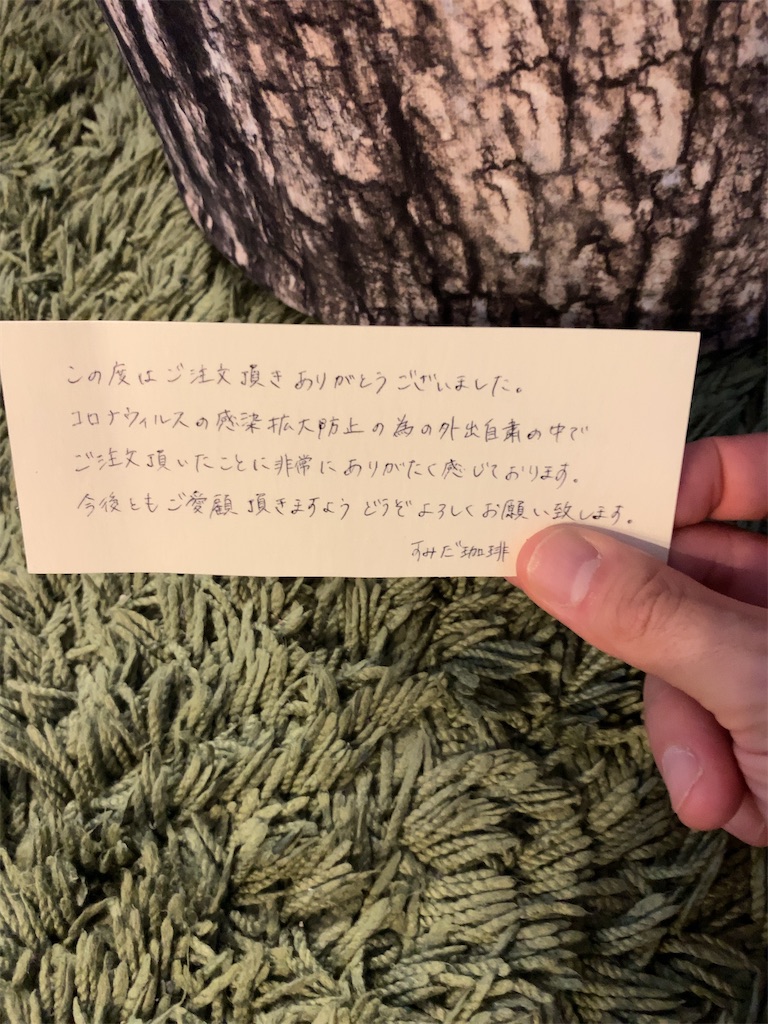 この度はご注文頂きありがとうございました。
コロナウィルスの感染拡大防止の為の外出自粛の中で
ご注文頂いたことに非常にありがたく感じております。
今後ともご愛顧頂きますようどうぞよろしくお願い致します。
すみだ珈琲